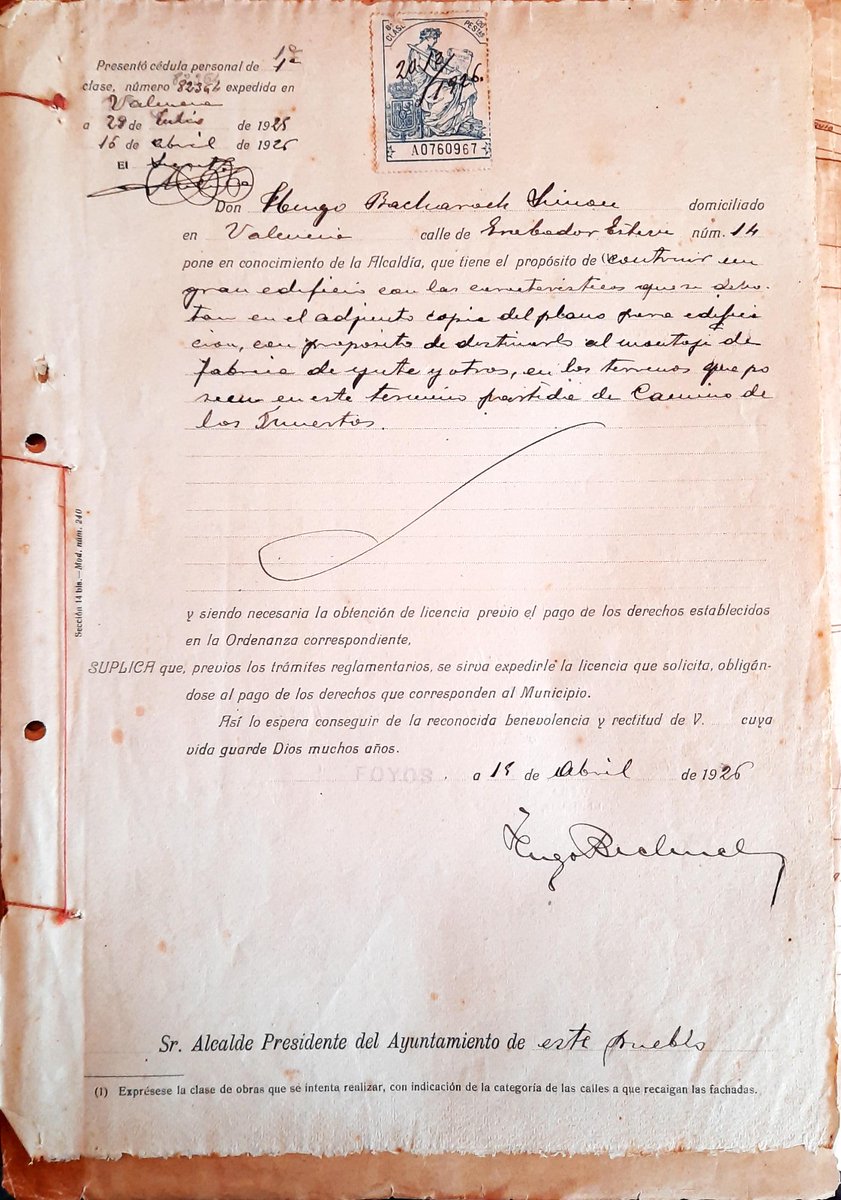 8.ª CLASE
PESETAS
20/4/1926.
A0760967
Presentó cédula personal de 1ª
clase, número 82364 expedida en
Valencia
a 29 de Julio de 1925
15 de abril de 1926
El
Don Hugo Bacharach Simon domiciliado
en Valencia calle de Grabador Esteve núm. 14
pone en conocimiento de la Alcaldía, que tiene el propósito de (1) contruir un
gran edificio con las caracteristicas que se deno-
tan en el adjunto copia del plano para edifica
cion, con proposito de destinarlo al montaje de
fabrica de yute y otros, en los terrenos que po
seen en este termino partida de Camino de
los Tuertos.
Sección 14 bis.—Mod. núm. 240
y siendo necesaria la obtención de licencia previo el pago de los derechos establecidos
en la Ordenanza correspondiente,
SUPLICA que, previos los trámites reglamentarios, se sirva expedirle la licencia que solicita, obligán-
dose al pago de los derechos que corresponden al Municipio.
Así lo espera conseguir de la reconocida benevolencia y rectitud de V. cuya
vida guarde Dios muchos años.
FOYOS a 15 de Abril de 1926
Hugo Bacharach
Sr. Alcalde Presidente del Ayuntamiento de este pueblo
(1) Exprésese la clase de obras que se intenta realizar, con indicación de la categoría de las calles a que recaigan las fachadas.